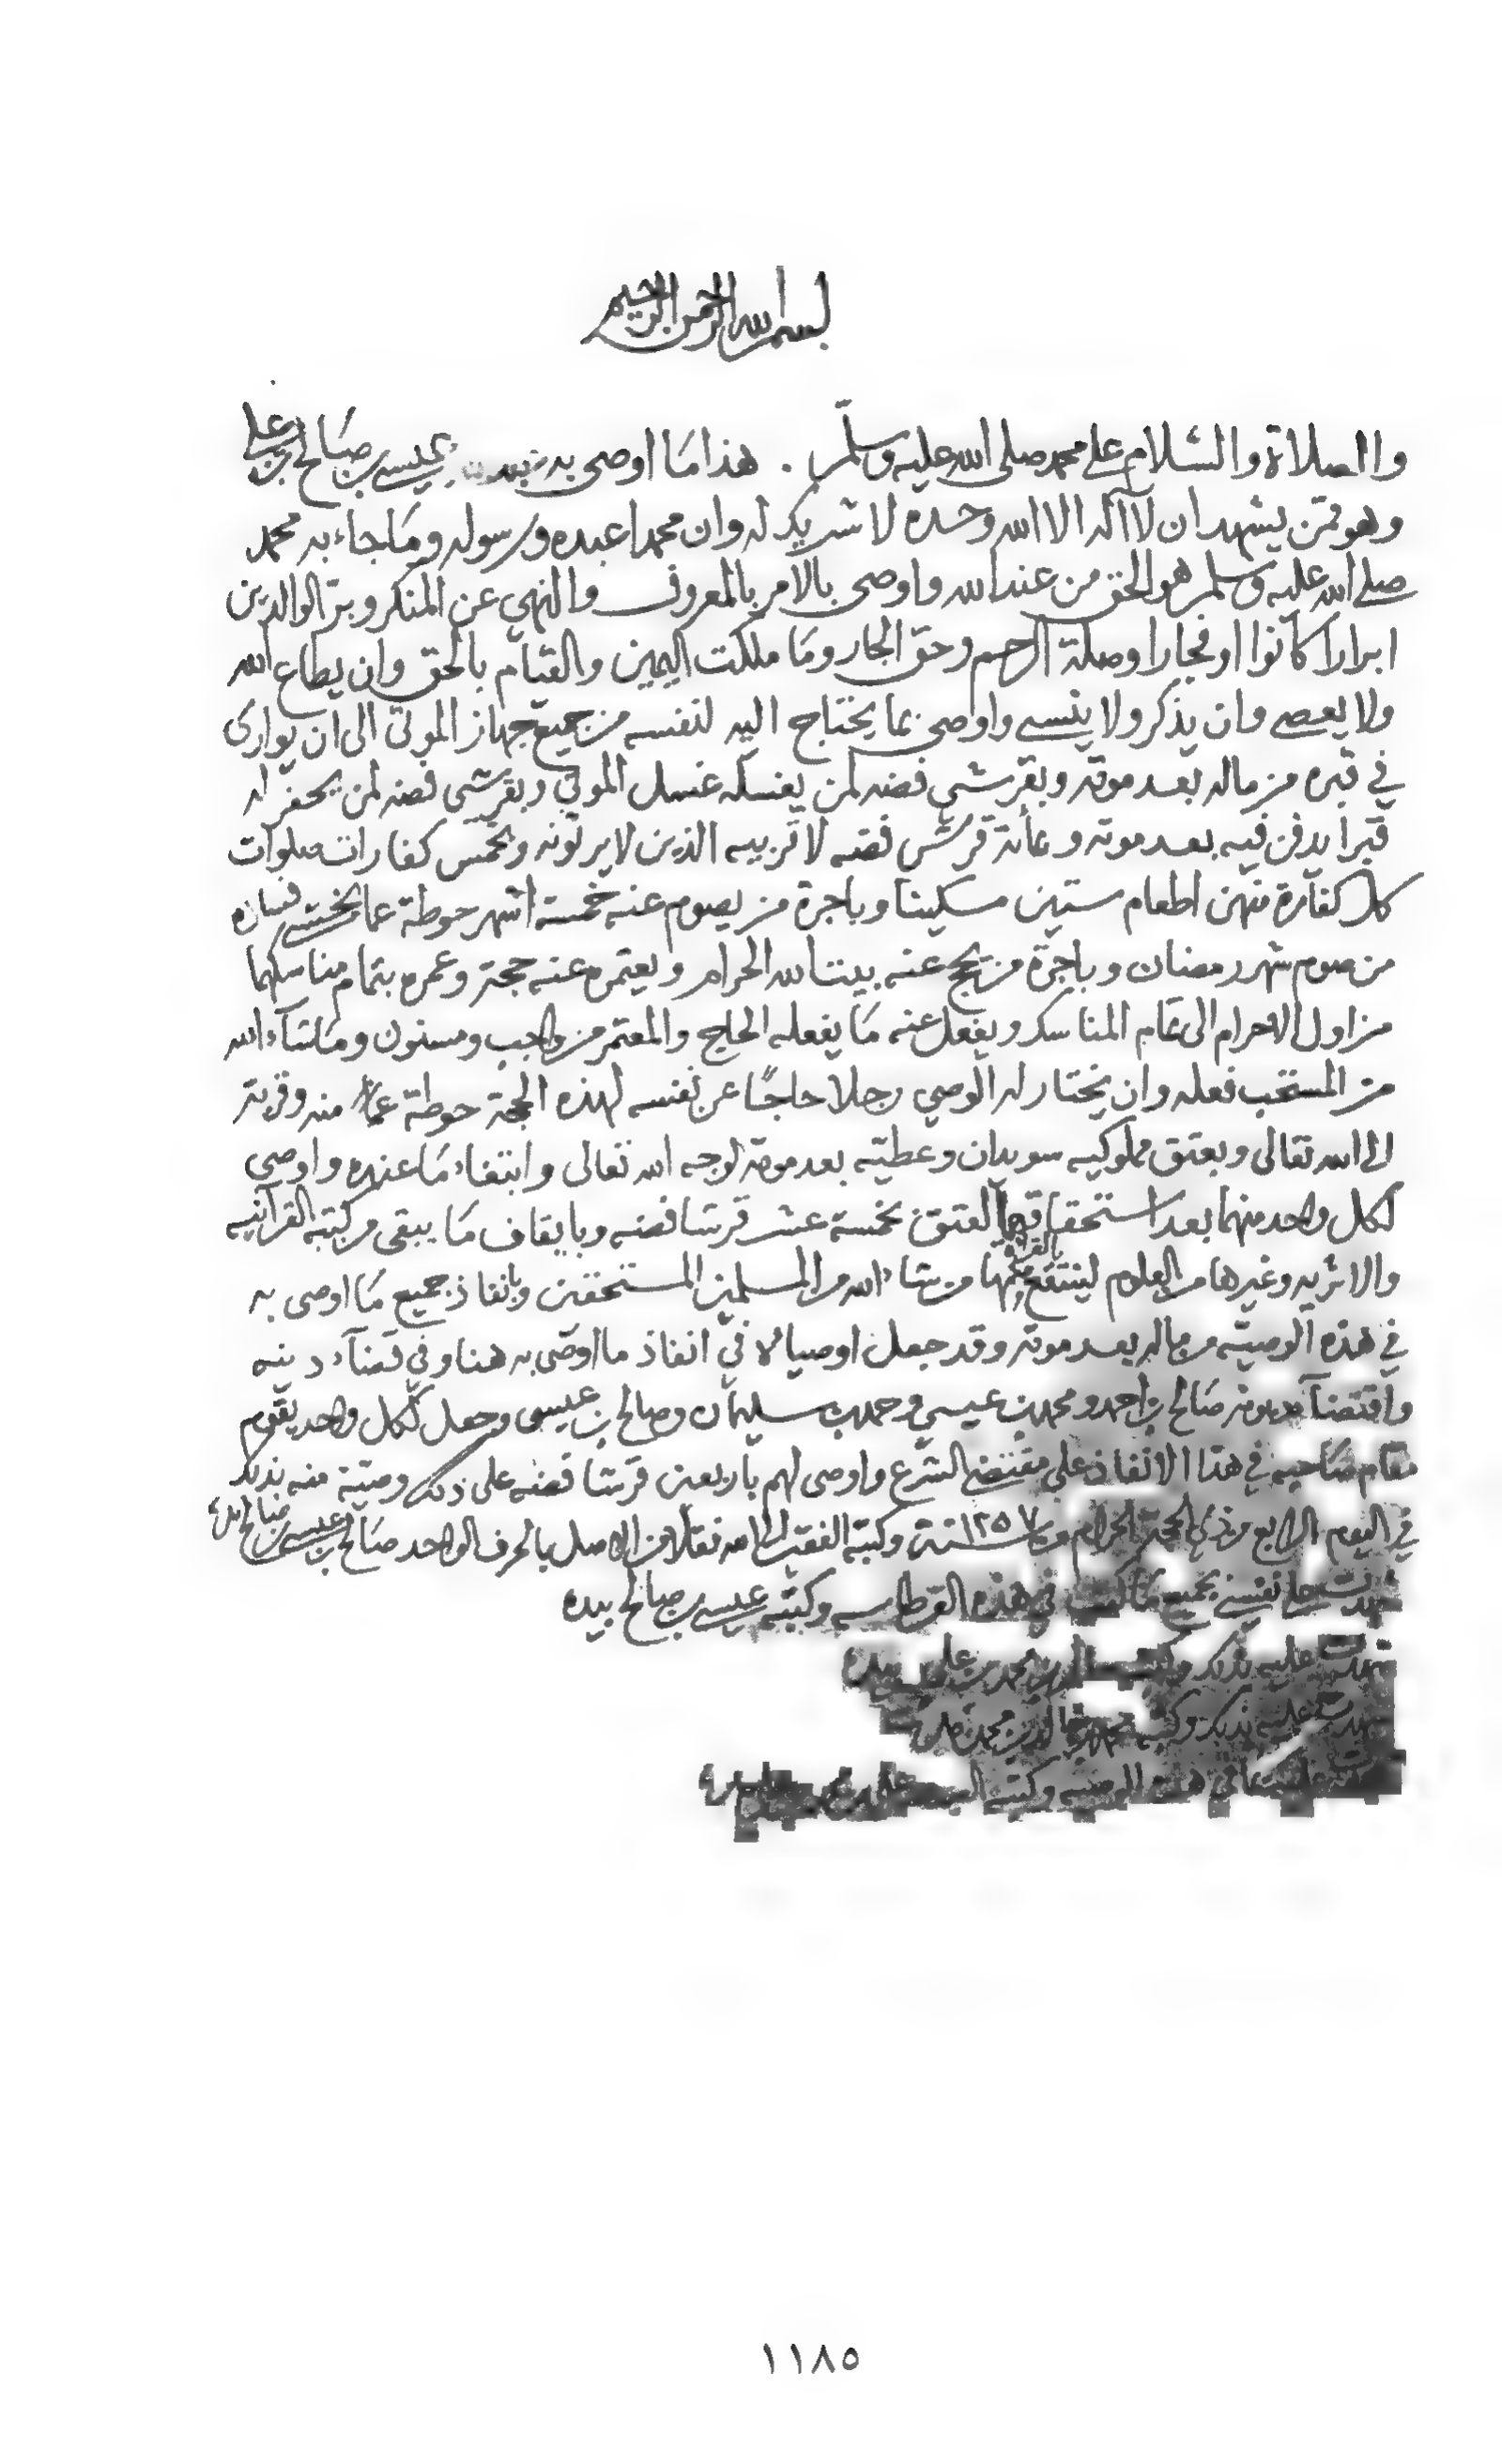 بسم الله الرحمن الرحيم
والصلاة والسلام على محمد صلى الله عليه وسلم . هذا ما اوصى به عيسى بن صالح بن علي
وهو ممن يشهد ان لا آله الا الله وحده لا شريك له وان محمدا عبده ورسوله وما جاء به محمد
صلى الله عليه وسلم هو الحق من عند الله واوصى بالامر بالمعروف والنهي عن المنكر وبر الوالدين
ابرارا كانوا او فجارا وصلة الرحم وحق الجار وما ملكت اليمين والقيام بالحق وان يطاع الله
ولا يعصى وان يذكر ولا ينسى واوصى بما يحتاج اليه لنفسه من جميع جهاز الموتى الى ان يوارى
في قبره من ماله بعد موته وبقرشي فضه لمن يغسله غسل الموتى وبقرشي فضه لمن يحفر له
قبرا يدفن فيه بعد موته وبمائة قرش فضه لاقربيه الذين لا يرثونه وبخمس كفارات صلوات
كل كفارة منهن اطعام ستين مسكينا وباجرة من يصوم عنه خمسة اشهر حوطة عما يخشى فساده
من صوم شهر رمضان وباجرة من يحج عنه بيت الله الحرام ويعتمر عنه حجة وعمره بتمام مناسكهما
من اول الاحرام الى تمام المناسك ويفعل عنه ما يفعله الحاج والمعتمر من واجب ومسنون وما شاء الله
من المستحب فعله وان يختار له الوصي رجلا حاجًا عن نفسه لهذه الحجة حوطة منه وقربة
الى الله تعالى وبعتق مملوكيه سويدان وعطيته بعد موته لوجه الله تعالى وابتغاء ما عنده واوصى
لكل واحد منهما بعد استحقاقهما العتق بخمسة عشر قرشا فضه وبايقاف ما يبقى من كتبه القرآنيه
والاثريه وغيرها من العلوم لينتفع بالقراءة منها من شاء الله من المسلمين المستحقين وبانفاذ جميع ما اوصى به
في هذه الوصيته من ماله بعد موته وقد جعل اوصياءه في انفاذ ما اوصى به هنا وفي قضاء دينه
واقتضاء ديونه صالح بن احمد ومحمد بن عيسى وحمد بن سليمان وصالح بن عيسى وجعل لكل واحد يقوم
مقام صاحبه في هذا الانفاذ على مقتضى الشرع واوصى لهم باربعين قرشا فضه على ذلك وصيّة منه بذلك
في اليوم الرابع من ذي الحجة الحرام من سنة ١٣٥٧ وكتبه الفقير لله نقلا من الاصل بالحرف الواحد صالح بن عيسى بن صالح بيده
شهدت على نفسي بجميع ما كتب في هذه القرطاسه وكتبه عيسى بن صالح بيده
شهدت عليه بذلك وكتبه بن علي بيده
شهدت عليه بذلك وكتبه
عليه بما في هذه الوصيه وكتبه
١١٨٥